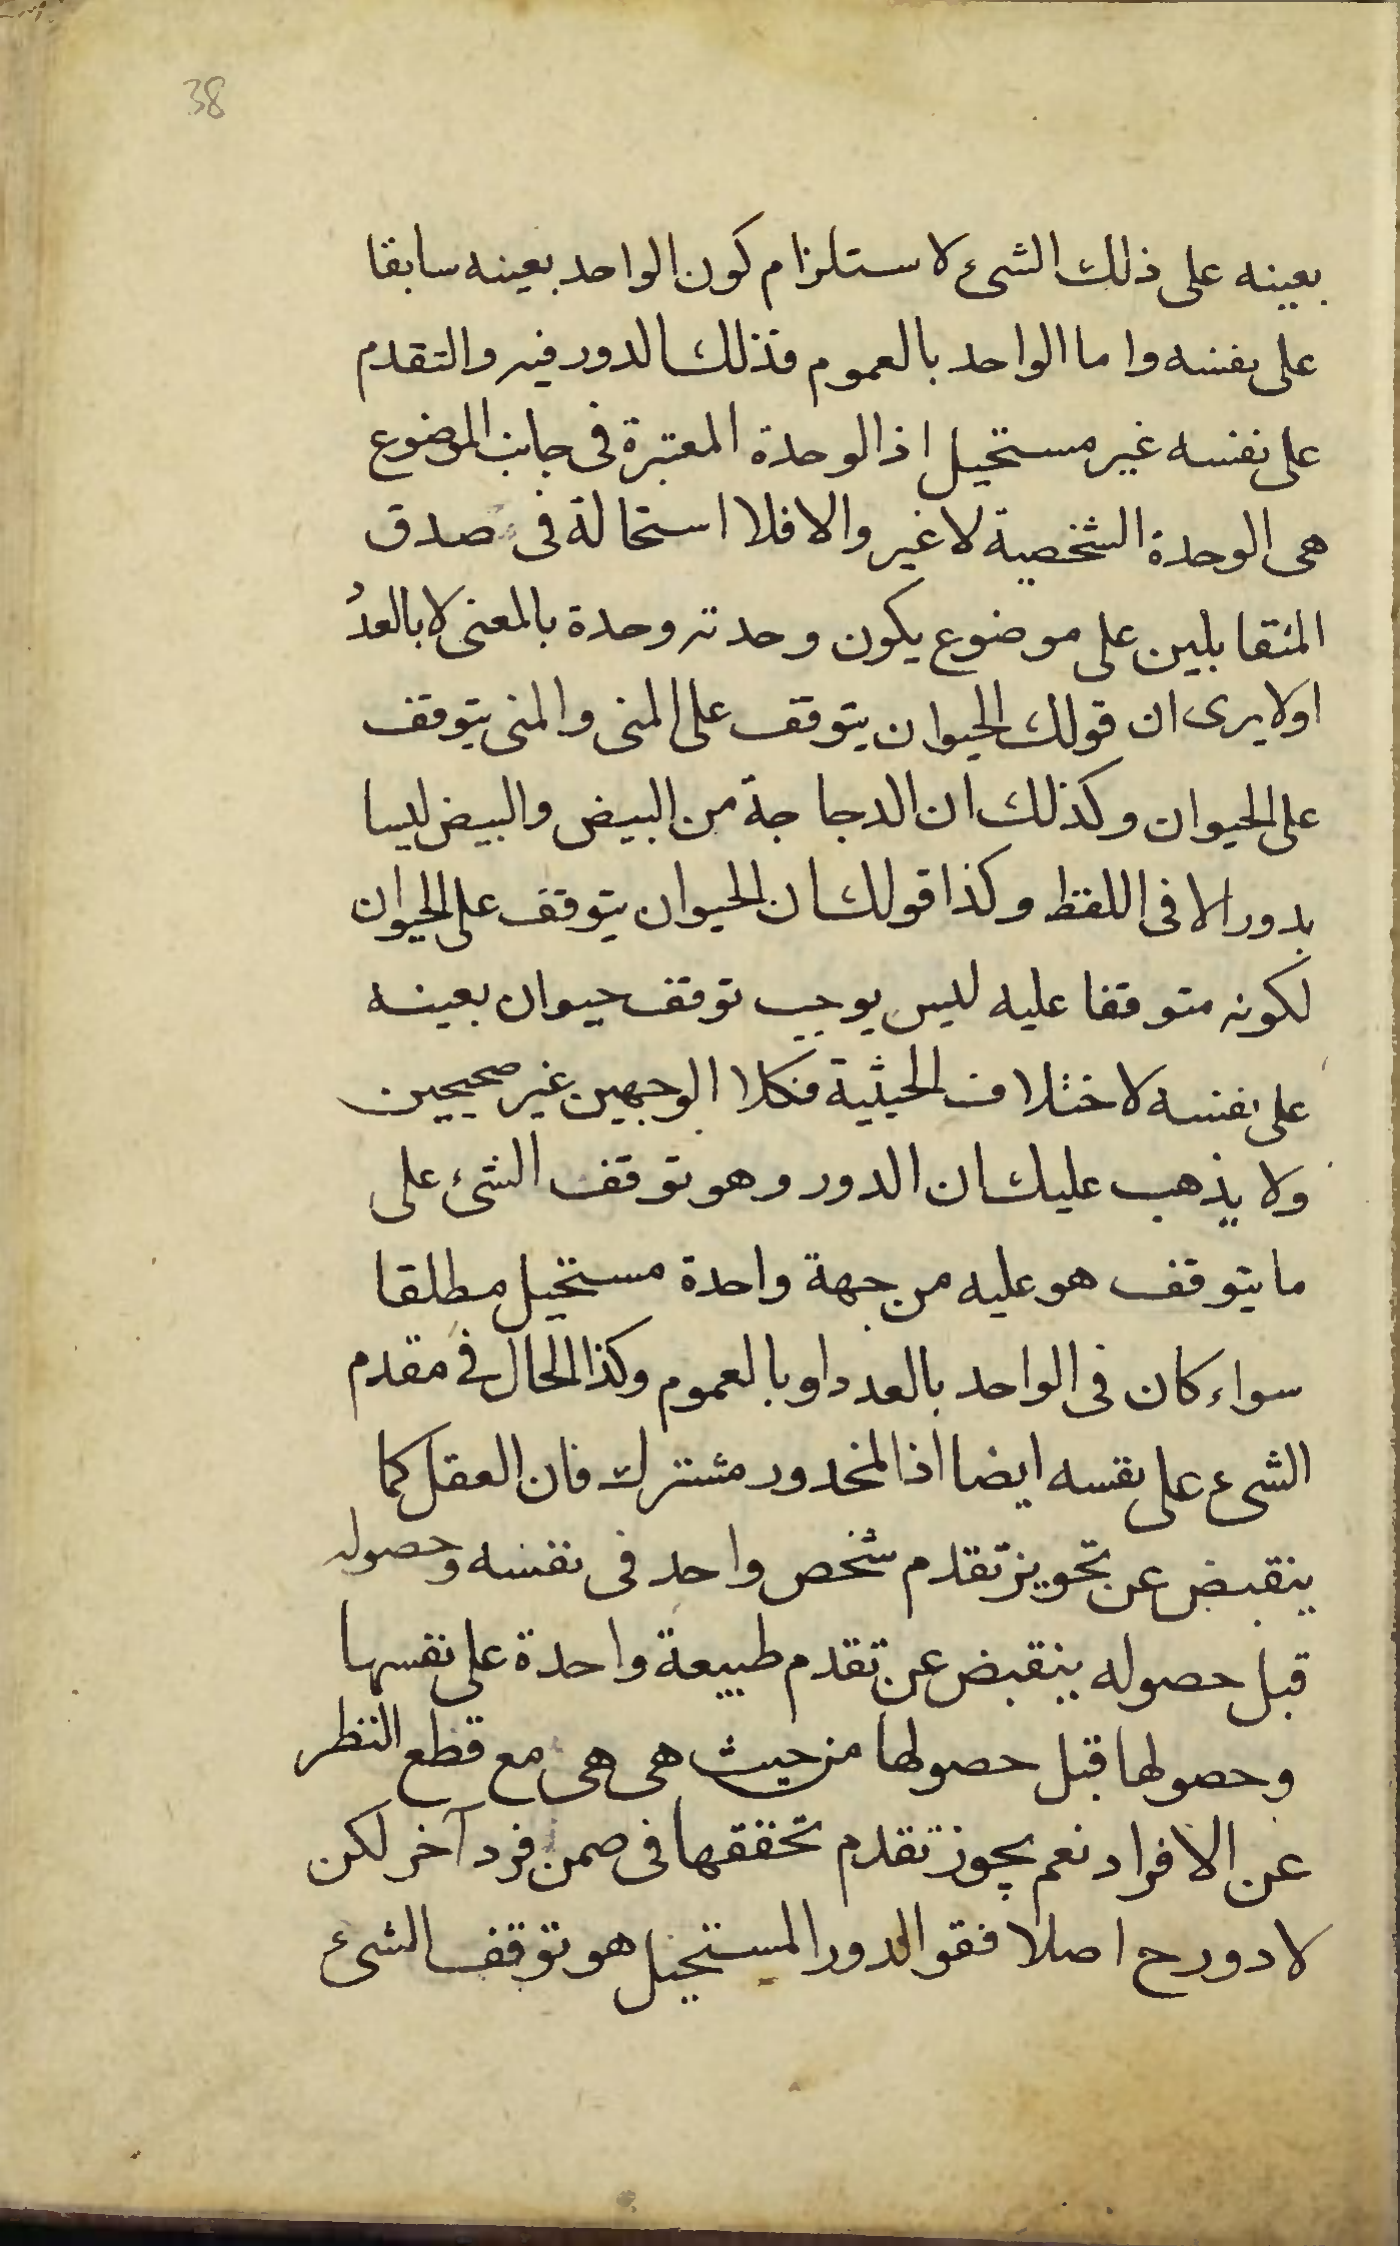 38
بعينه على ذلك الشئ لاستلزام كون الواحد بعينه سابقا
على نفسه واما الواحد بالعموم فذلك الدور فيه والتقدم
على نفسه غير مستحيل اذ الوحدة المعتبرة فى جانب الموضوع
هى الوحدة الشخصية لاغير والا فلا استحالة فى صدق
المتقابلين على موضوع يكون وحدته وحدة بالمعنى لا بالعدد
اولا يرى ان قولك الحيوان يتوقف على المنى والمنى يتوقف
على الحيوان وكذلك ان الدجاجة من البيض والبيض ليسا
بدور الا فى اللفظ وكذا قولك ان الحيوان يتوقف على الحيوان
لكونه متوقفا عليه ليس يوجب توقف حيوان بعينه
على نفسه لاختلاف الحيثية فكلا الوجهين غير صحيحين
ولا يذهب عليك ان الدور وهو توقف الشئ على
ما يتوقف هو عليه من جهة واحدة مستحيل مطلقا
سواء كان فى الواحد بالعدد او بالعموم وكذا الحال فى مقدم
الشئ على نفسه ايضا اذ المحدور مشترك فان العقل كما
ينقبض عن تجويز تقدم شخص واحد فى نفسه وحصوله
قبل حصوله ينقبض عن تقدم طبيعة واحدة على نفسها
وحصولها قبل حصولها من حيث هى هى مع قطع النظر
عن الافراد نعم يجوز تقدم تحققها فى ضمن فرد آخر لكن
لا دور ح اصلا فقو الدور المستحيل هو توقف الشئ